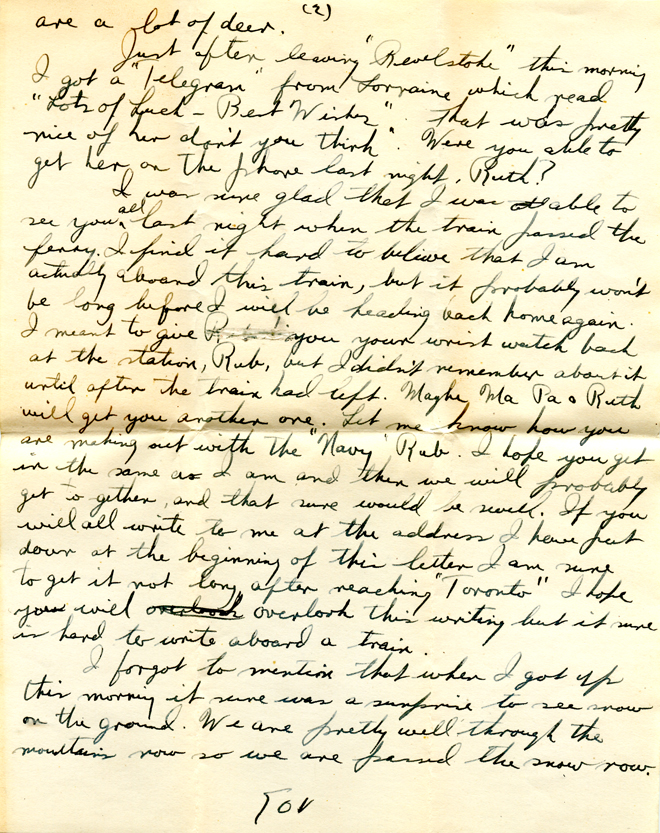 (2)
are a lot of deer.
Just after leaving "Revelstoke" this morning
I got a "Telegram" from Lorraine which read
"Lots of Luck – Best Wishes". That was pretty
nice of her don't you think". Were you able to
get her on the phone last night, Ruth?
I was sure glad that I was able to
see you all last night when the train passed the
ferry. I find it hard to believe that I am
actually aboard this train, but it probably won't
be long before I will be heading back home again.
I meant to give you your wrist watch back
at the station, Rub, but I didn't remember about it
until after the train had left. Maybe Ma Pa & Ruth
will get you another one. Let me know how you
are making out with the "Navy" Rub. I hope you get
in the same as I am and then we will probably
get to gether, and that sure would be swell. If you
will all write to me at the address I have put
down at the beginning of this letter I am sure
to get it not long after reaching "Toronto" I hope
you will overlook overlook this writing but it sure
is hard to write aboard a train.
I forgot to mention that when I got up
this morning it sure was a surprise to see snow
on the ground. We are pretty well through the
mountains now so we are passed the snow now.
TOV